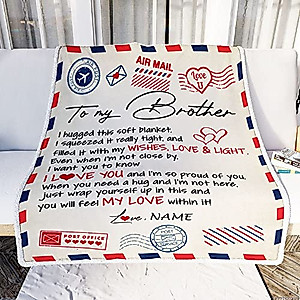 AIR MAIL
LOVE U
To my Brother
I hugged this soft blanket.
I squeezed it really tight, and
Filled it with my WISHES, LOVE & LIGHT.
Even when i'm not close by,
I want you to know
I LOVE YOU and i'm so proud of you.
When you need a hug and I'm not here,
Just wrap yourself up in this and
you will feel MY LOVE within it!
Love, NAME
POST OFFICE